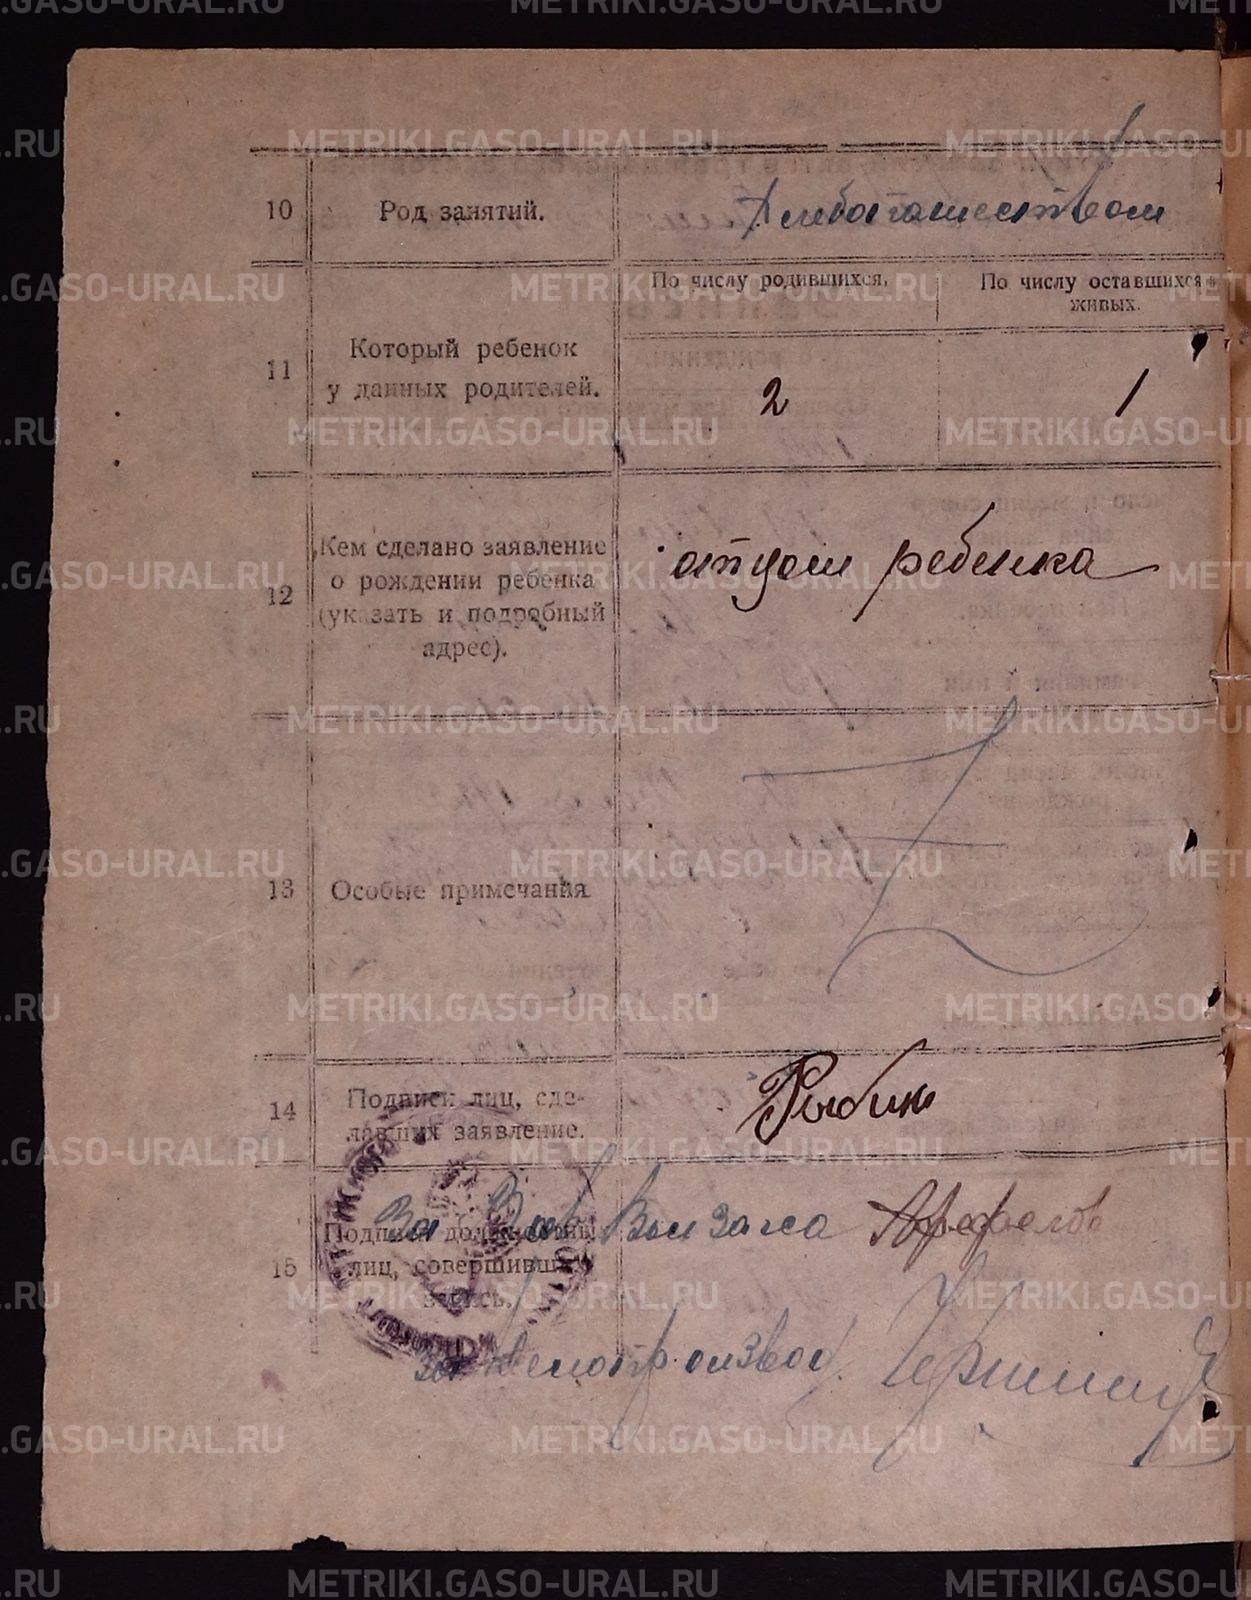 10 Род занятий. Хлебопашеством
По числу родившихся. По числу оставшихся живых.
11 Который ребенок
у данных родителей.
2 1
12 Кем сделано заявление
о рождении ребенка
(указать и подробный
адрес).
отцом ребенка
13 Особые примечания
14 Подписи лиц, сде-
лавших заявление.
Рыбин
15 Подписи должностных
лиц, совершивших
запись.
За Зав Волзагса
за делопроизвод.
METRIKI.GASO-URAL.RU